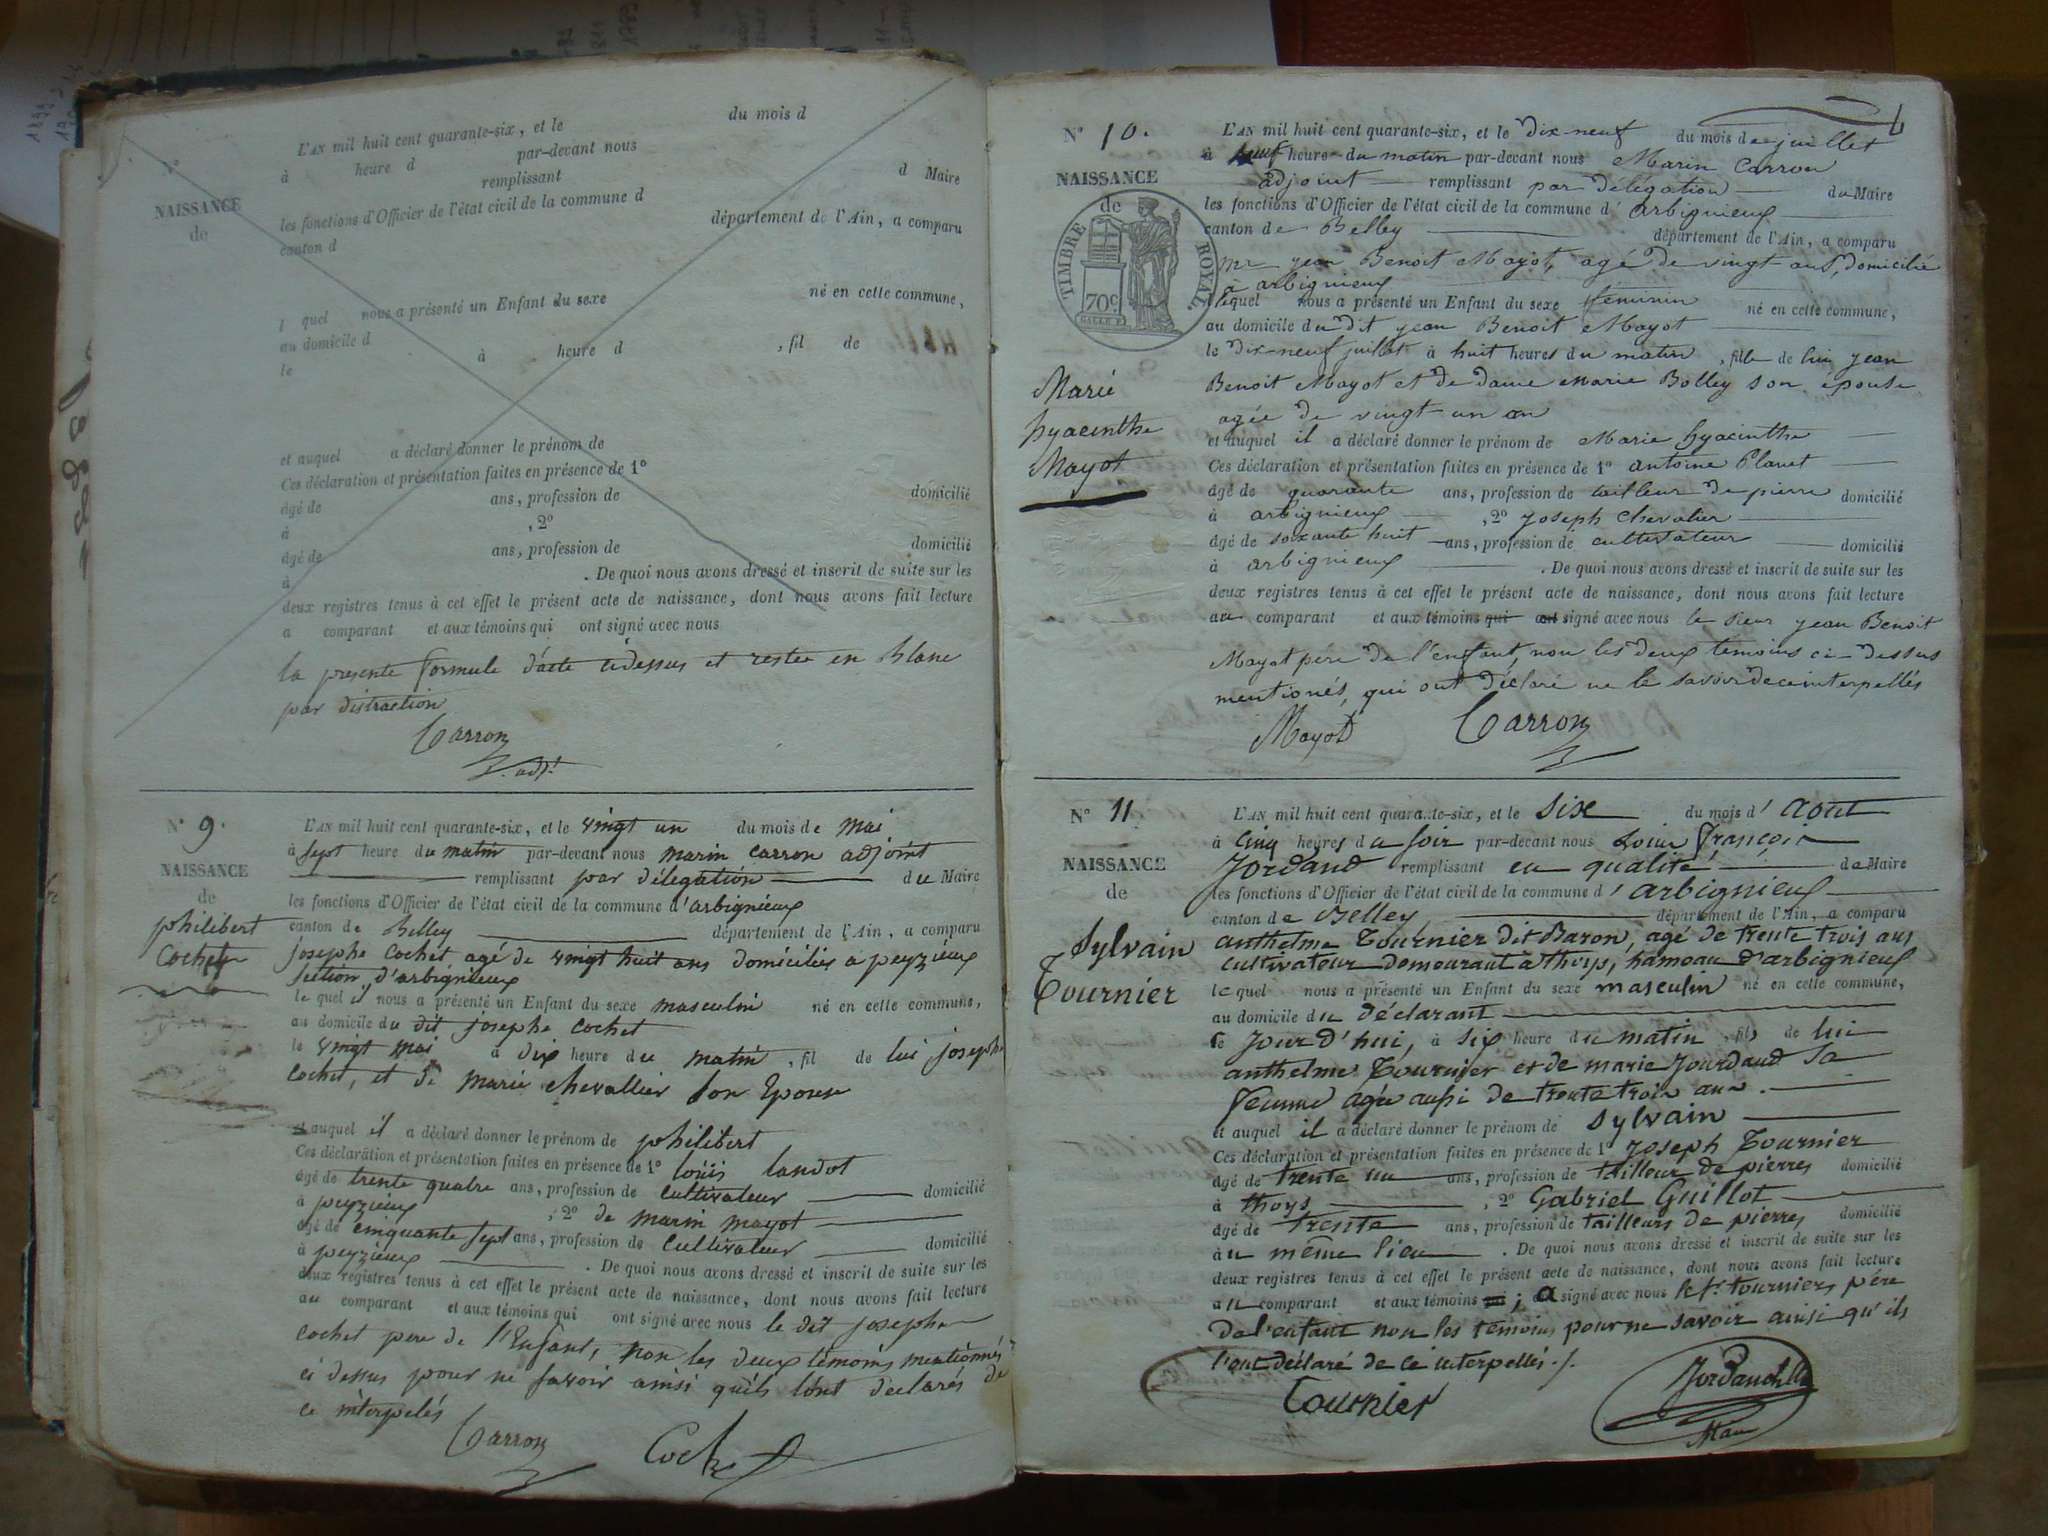 NAISSANCE
de
L'AN mil huit cent quarante-six, et le du mois d
à heure d par-devant nous
remplissant d Maire
les fonctions d'Officier de l'état civil de la commune d
canton d département de l'Ain, a comparu
l quel nous a présenté un Enfant du sexe né en cette commune,
au domicile d
le à heure d , fil de
et auquel a déclaré donner le prénom de
Ces déclaration et présentation faites en présence de 1°
âgé de ans, profession de domicilié
à , 2°
âgé de ans, profession de domicilié
à . De quoi nous avons dressé et inscrit de suite sur les
deux registres tenus à cet effet le présent acte de naissance, dont nous avons fait lecture
a comparant et aux témoins qui ont signé avec nous
la presente formule d'acte cidessus et restée en Blanc
par distraction
Carron
adjt
N° 9.
NAISSANCE
de
philibert
Cochet
L'AN mil huit cent quarante-six, et le vingt un du mois de mai
à sept heure du matin par-devant nous marin carron adjoint
remplissant par délégation du Maire
les fonctions d'Officier de l'état civil de la commune d'arbignieux
canton de Belley département de l'Ain, a comparu
josephe Cochet agé de vingt huit ans domiciliés a peyzieux
section d'arbignieux
le quel il nous a présenté un Enfant du sexe masculin né en cette commune,
au domicile du dit josephe cochet
le vingt mai à dix heure du matin , fil de lui josephe
Cochet, et de marie chevallier son Epouse
et auquel il a déclaré donner le prénom de philibert
Ces déclaration et présentation faites en présence de 1° louis landot
âgé de trente quatre ans, profession de Cultivateur domicilié
à peyzieux , 2° de marin mayot
âgé de cinquante sept ans, profession de Cultivateur domicilié
à peyzieux . De quoi nous avons dressé et inscrit de suite sur les
deux registres tenus à cet effet le présent acte de naissance, dont nous avons fait lecture
au comparant et aux témoins qui ont signé avec nous le dit josephe
cochet pere de l'Enfant, non les deux témoins mentionnés
ci dessus pour ne savoir ainsi quils lont déclarés de
ce interpelés
Carron Cochet
N° 10.
NAISSANCE
de
TIMBRE ROYAL
70c
Marie
hyacinthe
Mayot
L'AN mil huit cent quarante-six, et le dix-neuf du mois de juillet
à neuf heure du matin par-devant nous Marin Carron
adjoint remplissant par délégation du Maire
les fonctions d'Officier de l'état civil de la commune d'arbignieux
canton de Belley département de l'Ain, a comparu
mr jean Benoit Mayot, agé de vingt ans, domicilié
à arbignieux
lequel nous a présenté un Enfant du sexe féminin né en cette commune,
au domicile du dit jean Benoit Mayot
le dix-neuf juillet à huit heures du matin , fille de lui jean
Benoit Mayot et de dame marie Bolley son épouse
agée de vingt-un an
et auquel il a déclaré donner le prénom de Marie hyacinthe
Ces déclaration et présentation faites en présence de 1° antoine Planet
âgé de quarante ans, profession de tailleur de pierre domicilié
à arbignieux , 2° joseph chevalier
âgé de soixante huit ans, profession de cultivateur domicilié
à arbignieux . De quoi nous avons dressé et inscrit de suite sur les
deux registres tenus à cet effet le présent acte de naissance, dont nous avons fait lecture
au comparant et aux témoins qui ont signé avec nous le sieur jean Benoit
Mayot père de l'enfant, non les deux temoins ci-dessus
mentionés, qui ont déclaré ne le savoir de ce interpellés
Mayot Carron
N° 11
NAISSANCE
de
Sylvain
Tournier
L'AN mil huit cent quarante-six, et le six du mois d'aout
à cinq heures du soir par-devant nous Louis François
Jordand remplissant en qualité de Maire
les fonctions d'Officier de l'état civil de la commune d'arbignieux
canton de Belley département de l'Ain, a comparu
anthelme Tournier dit Baron, agé de trente trois ans
cultivateur demeurant à thoys, hameau d'arbignieux
le quel nous a présenté un Enfant du sexe masculin né en cette commune,
au domicile du déclarant
le jour d'hui, à six heure du matin , fils de lui
anthelme Tournier et de marie Jourdand sa
femme agée aussi de trente trois ans.
et auquel il a déclaré donner le prénom de Sylvain
Ces déclaration et présentation faites en présence de 1° Joseph Tournier
âgé de trente un ans, profession de tailleur de pierres domicilié
à thoys , 2° Gabriel Guillot
âgé de trente ans, profession de tailleurs de pierres domicilié
au même lieu . De quoi nous avons dressé et inscrit de suite sur les
deux registres tenus à cet effet le présent acte de naissance, dont nous avons fait lecture
au comparant et aux témoins ; a signé avec nous le sr tournier, père
de l'enfant non les témoins pour ne savoir ainsi qu'ils
l'ont déclaré de ce interpellés ./.
Tournier